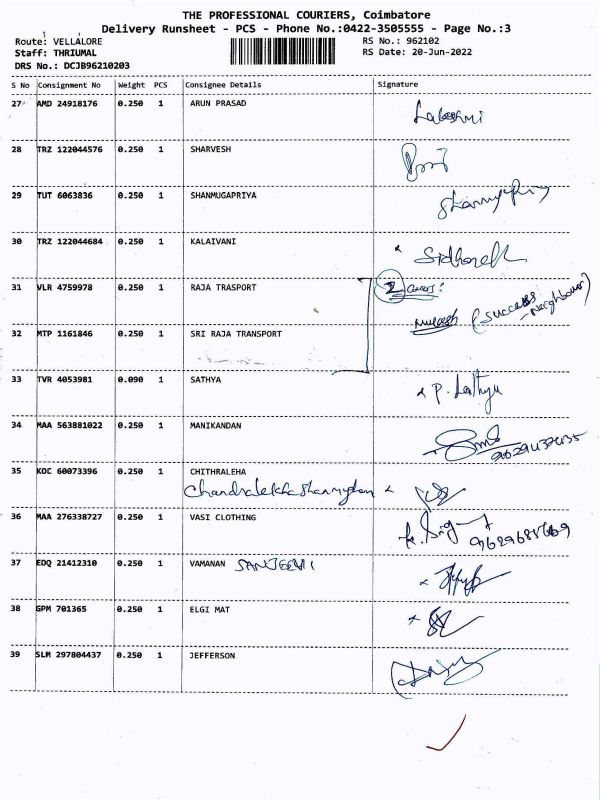 THE PROFESSIONAL COURIERS, Coimbatore
Delivery Runsheet - PCS - Phone No.:0422-3505555 - Page No.:3
Route: VELLALORE RS No.: 962102
Staff: THRIUMAL RS Date: 20-Jun-2022
DRS No.: DCJB96210203
S No Consignment No Weight PCS Consignee Details Signature
27 AMD 24918176 0.250 1 ARUN PRASAD
Lakshmi
28 TRZ 122044576 0.250 1 SHARVESH
29 TUT 6063836 0.250 1 SHANMUGAPRIYA
30 TRZ 122044684 0.250 1 KALAIVANI
31 VLR 4759978 0.250 1 RAJA TRASPORT
2 covers:
(success
-neighbour)
32 MTP 1161846 0.250 1 SRI RAJA TRANSPORT
33 TVR 4053981 0.090 1 SATHYA
x P. Sathya
34 MAA 563881022 0.250 1 MANIKANDAN
35 KOC 60073396 0.250 1 CHITHRALEHA
36 MAA 276338727 0.250 1 VASI CLOTHING
37 EDQ 21412310 0.250 1 VAMANAN SANJEEVI
38 GPM 701365 0.250 1 ELGI MAT
39 SLM 297804437 0.250 1 JEFFERSON